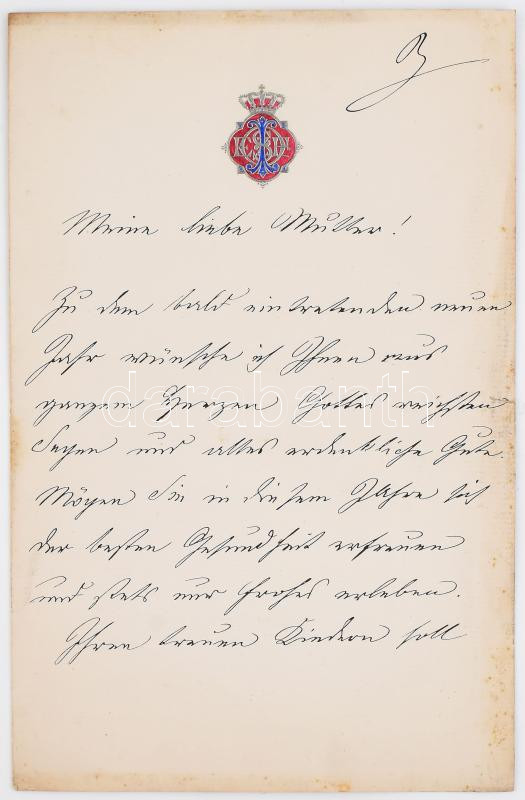 Meine liebe Mutter!
Zu dem bald eintretenden neuen
Jahr wünsche ich Ihnen aus
ganzem Herzen Gottes reichsten
Segen und alles erdenkliche Gute.
Mögen Sie in diesem Jahre sich
der besten Gesundheit erfreuen
und stets nur frohes erleben.
Ihren treuen Kindern soll
darabanth